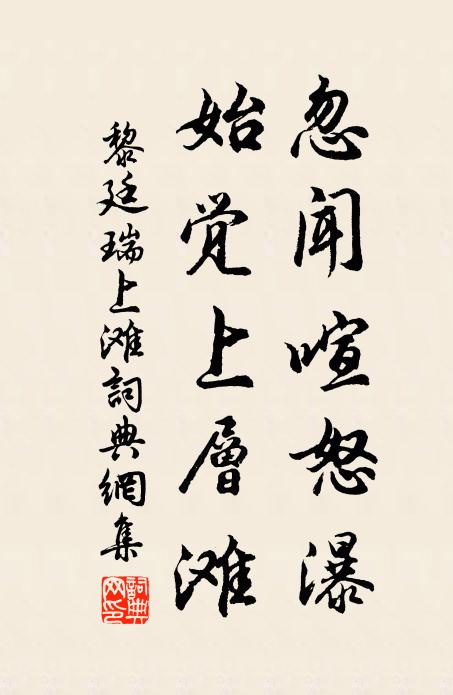 忽闻喧怒瀑
始觉上層滩
黎廷瑞上滩詞典網集
詞典网印